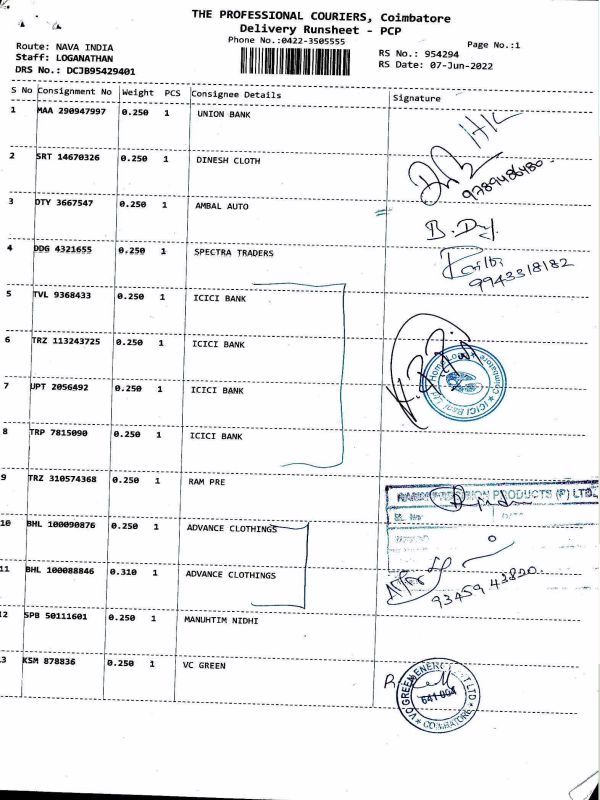 THE PROFESSIONAL COURIERS, Coimbatore
Delivery Runsheet - PCP
Phone No.:0422-3505555
Page No.:1
Route: NAVA INDIA
RS No.: 954294
Staff: LOGANATHAN
RS Date: 07-Jun-2022
DRS No.: DCJB95429401
S No Consignment No Weight PCS Consignee Details Signature
1 MAA 290947997 0.250 1 UNION BANK
2 SRT 14670326 0.250 1 DINESH CLOTH
9789486480
3 OTY 3667547 0.250 1 AMBAL AUTO
4 DDG 4321655 0.250 1 SPECTRA TRADERS
9943318182
5 TVL 9368433 0.250 1 ICICI BANK
6 TRZ 113243725 0.250 1 ICICI BANK
7 UPT 2056492 0.250 1 ICICI BANK
ICICI Bank Ltd Home Loan Coimbatore
8 TRP 7815090 0.250 1 ICICI BANK
9 TRZ 310574368 0.250 1 RAM PRE
PRODUCTS (P) LTD.
10 BHL 100090876 0.250 1 ADVANCE CLOTHINGS
11 BHL 100088846 0.310 1 ADVANCE CLOTHINGS
93459 43820
12 SPB 50111601 0.250 1 MANUHTIM NIDHI
13 KSM 878836 0.250 1 VC GREEN
GREEN ENERGY PVT LTD
641 004
COIMBATORE